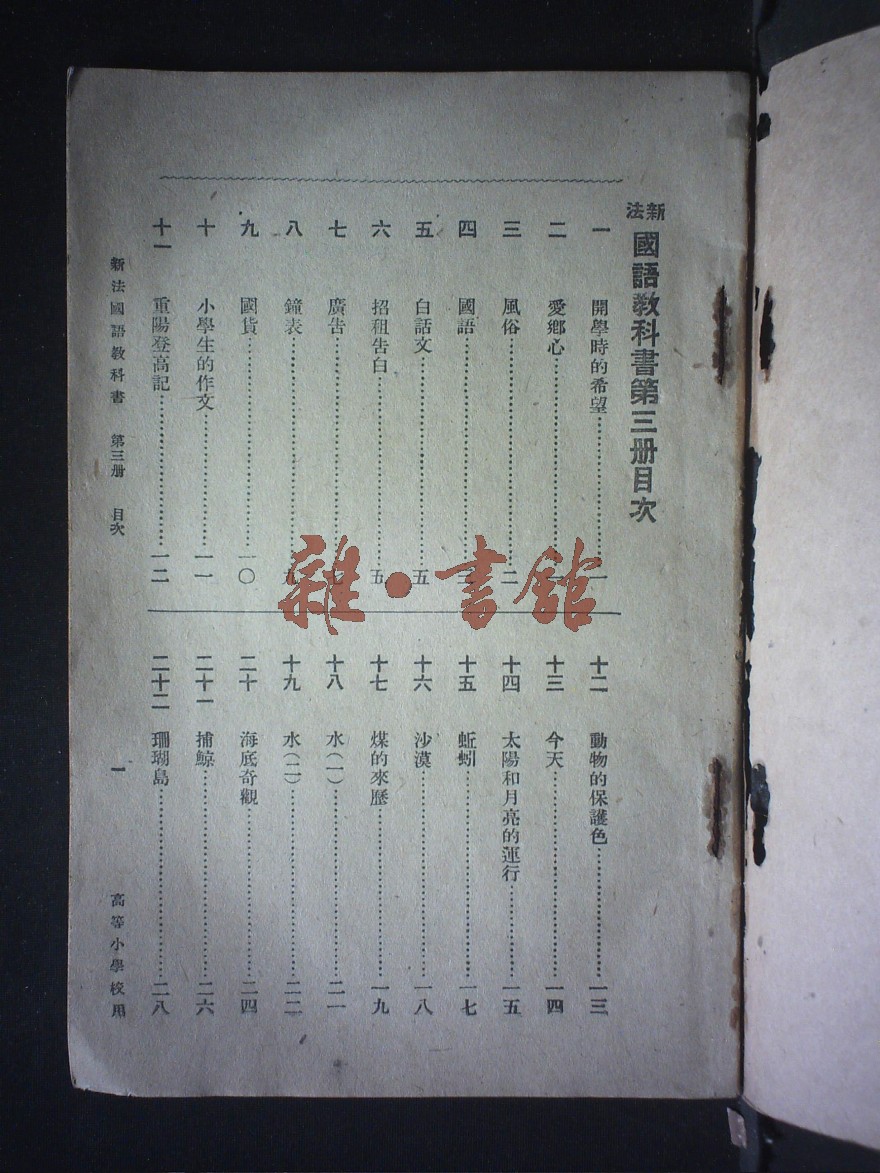 新法 國語教科書第三册目次
一 開學時的希望 一
二 愛鄉心
三 風俗 二
四 國語 三
五 白話文 五
六 招租告白 五
七 廣告 七
八 鐘表 九
九 國貨 一〇
十 小學生的作文 一一
十一 重陽登高記 一二
十二 動物的保護色 一三
十三 今天 一四
十四 太陽和月亮的運行 一五
十五 蚯蚓 一七
十六 沙漠 一八
十七 煤的來歷 一九
十八 水(一) 二一
十九 水(二) 二二
二十 海底奇觀 二四
二十一 捕鯨 二六
二十二 珊瑚島 二八
新法國語教科書 第三册 目次 一 高等小學校用
雜·書館